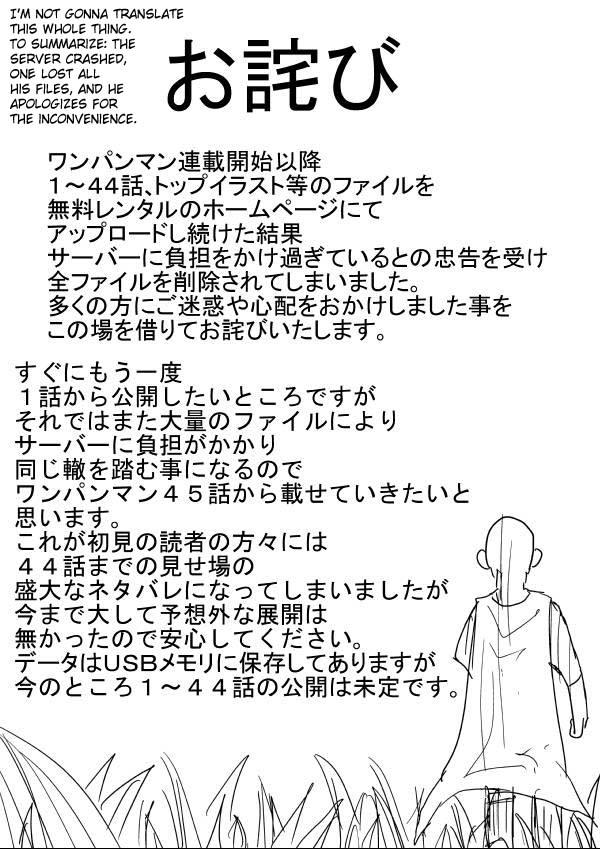 I'M NOT GONNA TRANSLATE
THIS WHOLE THING.
TO SUMMARIZE: THE
SERVER CRASHED,
ONE LOST ALL
HIS FILES, AND HE
APOLOGIZES FOR
THE INCONVENIENCE.
お詫び
ワンパンマン連載開始以降
１～４４話、トップイラスト等のファイルを
無料レンタルのホームページにて
アップロードし続けた結果
サーバーに負担をかけ過ぎているとの忠告を受け
全ファイルを削除されてしまいました。
多くの方にご迷惑や心配をおかけしました事を
この場を借りてお詫びいたします。
すぐにもう一度
１話から公開したいところですが
それではまた大量のファイルにより
サーバーに負担がかかり
同じ轍を踏む事になるので
ワンパンマン４５話から載せていきたいと
思います。
これが初見の読者の方々には
４４話までの見せ場の
盛大なネタバレになってしまいましたが
今まで大して予想外な展開は
無かったので安心してください。
データはＵＳＢメモリに保存してありますが
今のところ１～４４話の公開は未定です。